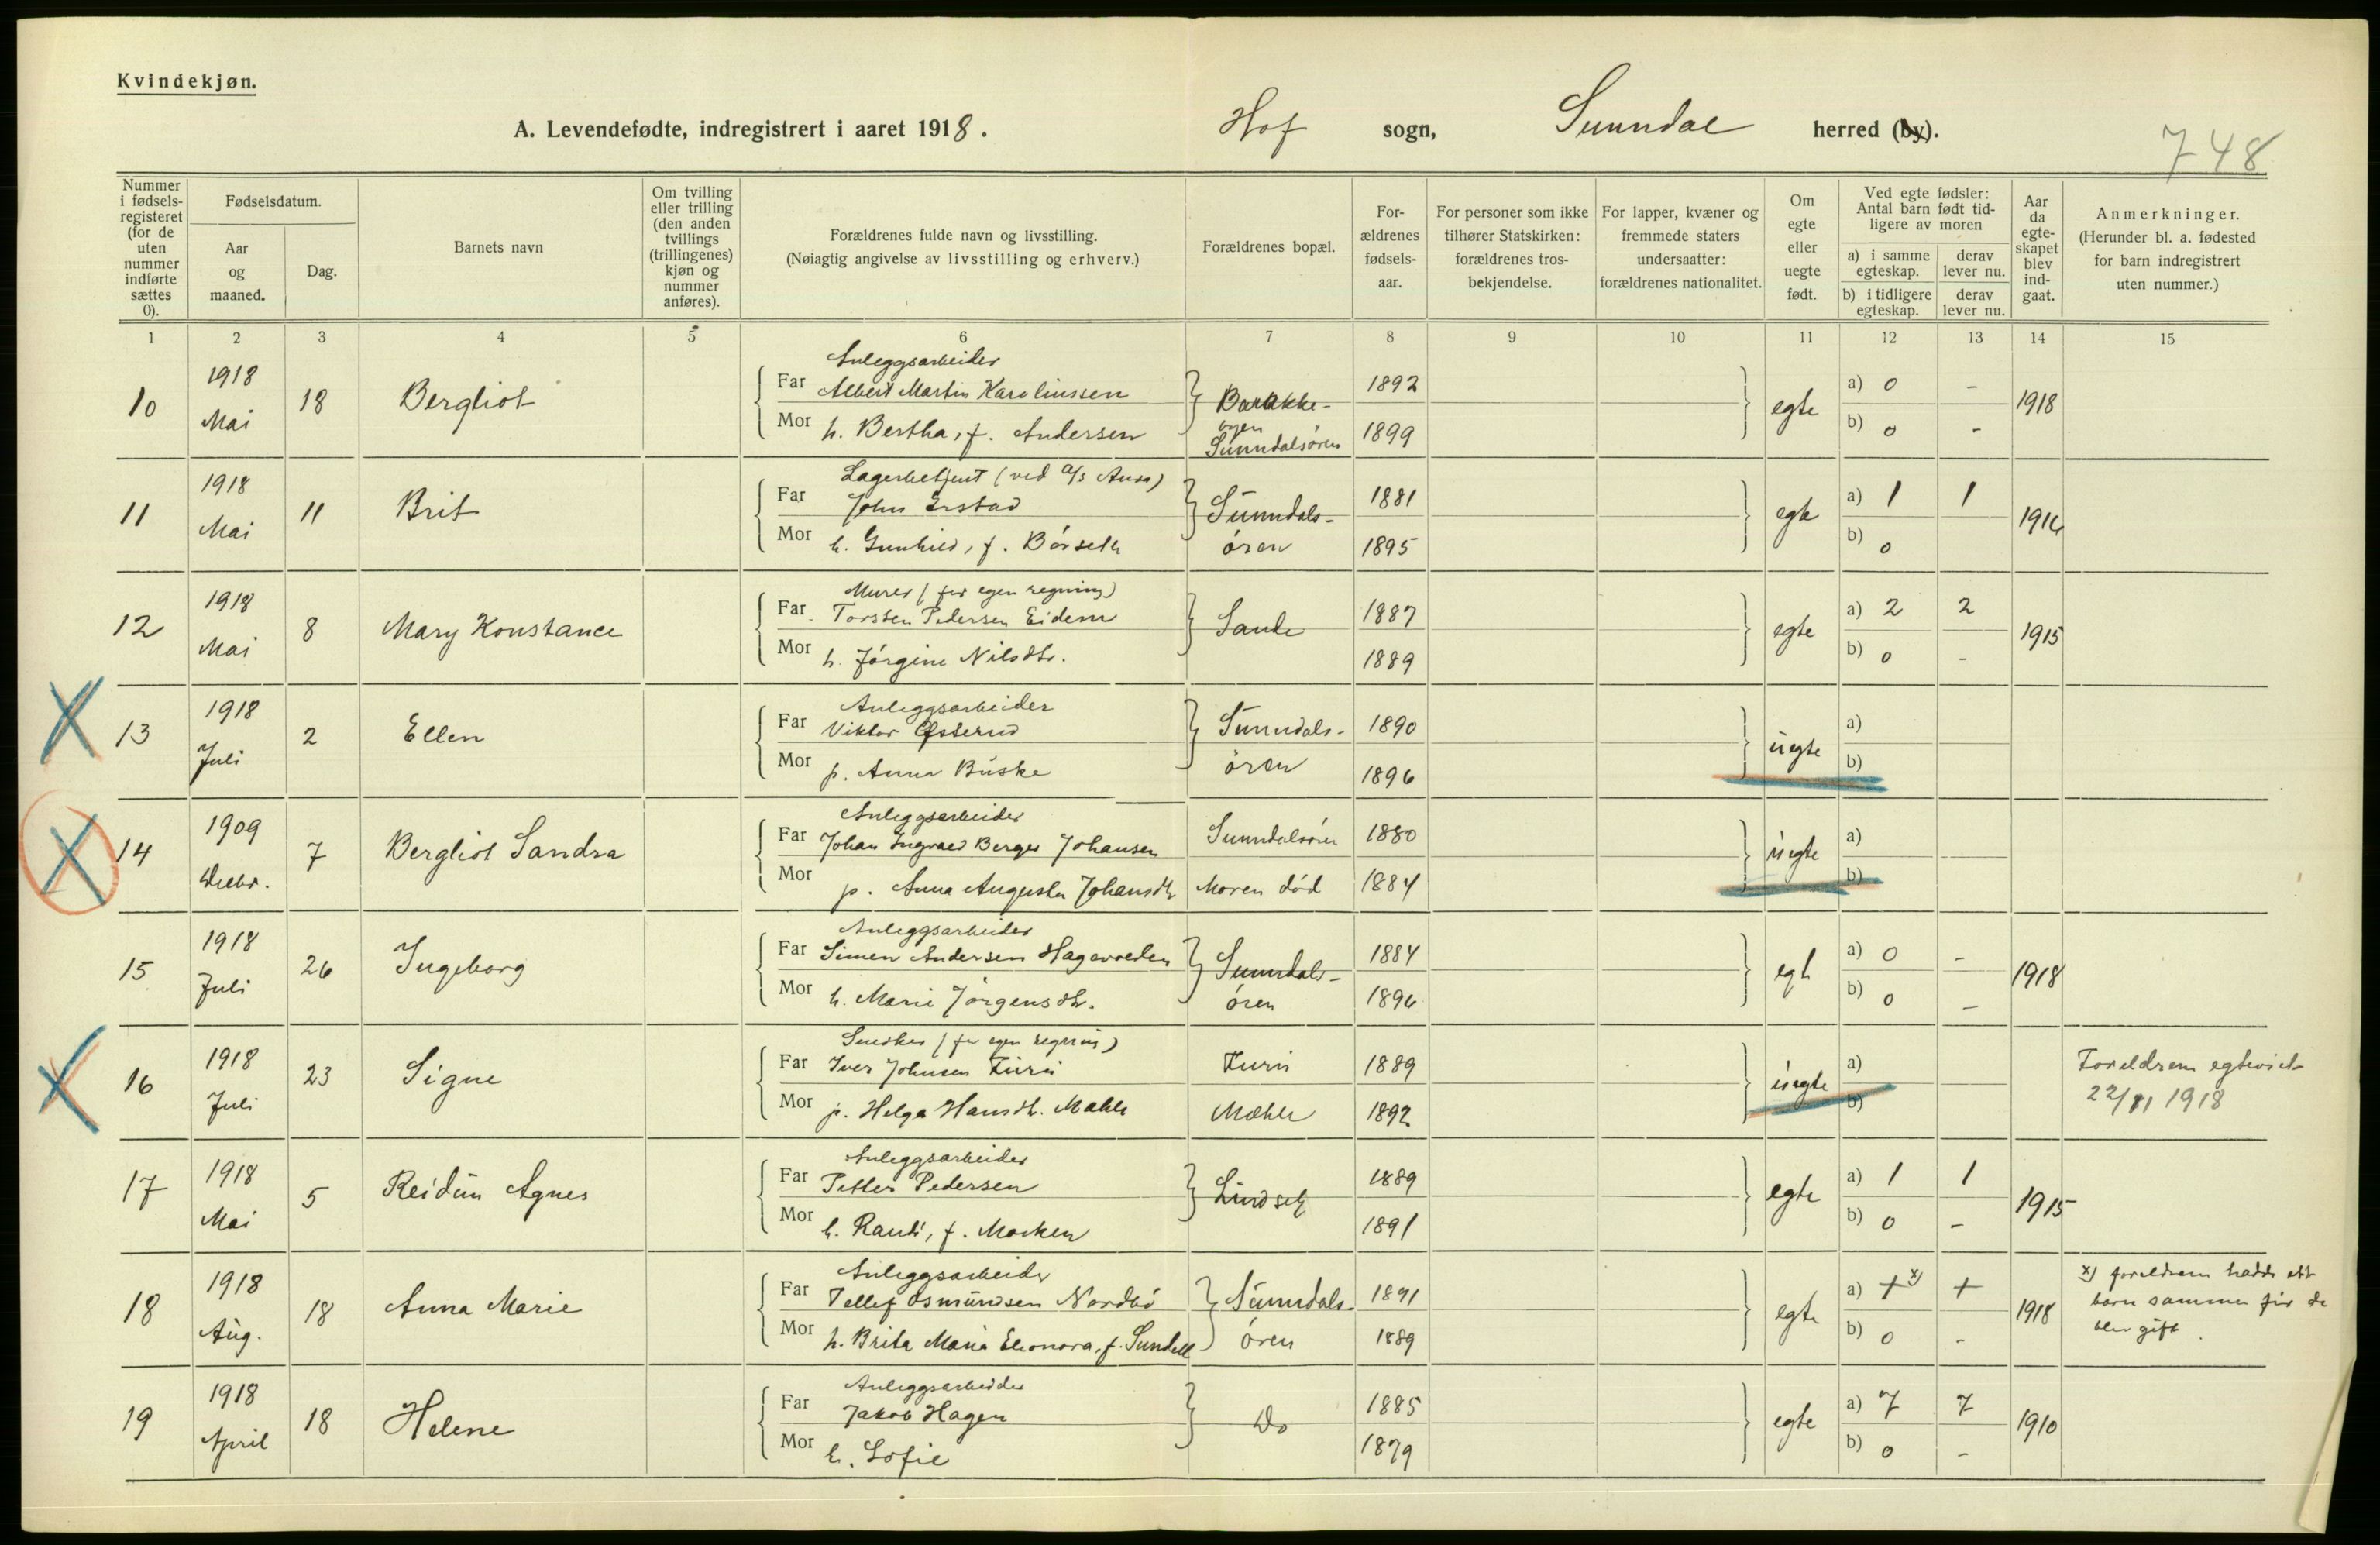 Kvindekjøn.
A. Levendefødte, indregistrert i aaret 1918. Hof sogn, Sunndal herred (by).
748
Nummer i fødselsregisteret (for de uten nummer indførte sættes 0).
Fødselsdatum.
Aar og maaned.
Dag.
Barnets navn
Om tvilling eller trilling (den anden tvillings (trillingenes) kjøn og nummer anføres).
Forældrenes fulde navn og livsstilling.
(Nøiagtig angivelse av livsstilling og erhverv.)
Forældrenes bopæl.
Forældrenes fødselsaar.
For personer som ikke tilhører Statskirken: forældrenes trosbekjendelse.
For lapper, kvæner og fremmede staters undersaatter: forældrenes nationalitet.
Om egte eller uegte født.
Ved egte fødsler: Antal barn født tidligere av moren
a) i samme egteskap. derav lever nu.
b) i tidligere egteskap. derav lever nu.
Aar da egteskapet blev indgaat.
Anmerkninger.
(Herunder bl. a. fødested for barn indregistrert uten nummer.)
1 2 3 4 5 6 7 8 9 10 11 12 13 14 15
Anleggsarbeider
10 1918 Mai 18 Bergliot Far Albert Martin Karolinssen Barakke- 1892 egte a) 0 - 1918
Mor h. Bertha, f. Andersen byen Sunndalsøren 1899 b) 0 -
Lagerbetjent (ved A/s Aura)
11 1918 Mai 11 Brit Far John Erstad Sunndals- 1881 egte a) 1 1 1914
Mor h. Gunhild, f. Børseth øren 1895 b) 0
Murer (for egen regning)
12 1918 Mai 8 Mary Konstance Far Torsten Pedersen Eidem Sande 1887 egte a) 2 2 1915
Mor h. Jørgine Nilsdtr. 1889 b) 0 -
Anleggsarbeider
13 1918 Juli 2 Ellen Far Viktor Sunndals- 1890 uegte a)
Mor p. Anna Buske øren 1896 b)
Anleggsarbeider
14 1909 Decbr. 7 Bergliot Sandra Far Johan Ingvald Berger Johansen Sunndalsøren 1880 uegte a)
Mor p. Anna Augusta Johansdtr Moren død 1884 b)
Anleggsarbeider
15 1918 Juli 26 Ingeborg Far Simen Andersen Sunndals- 1884 egte a) 0 - 1918
Mor h. Marie Jørgensdtr. øren 1896 b) 0 -
Snedker (for egen regning)
16 1918 Juli 23 Signe Far Iver Johnsen Furu Furu 1889 uegte a) Foreldrene egteviet
Mor p. Helga Hansdtr. Mæhle Mæhle 1892 b) 22/11 1918
Anleggsarbeider
17 1918 Mai 5 Reidun Agnes Far Petter Pedersen Lindset 1889 egte a) 1 1 1915
Mor h. Randi, f. Morken 1891 b) 0 -
Anleggsarbeider
18 1918 Aug. 18 Anna Marie Far Tellef Osmundsen Nordbø Sunndals- 1891 egte a) + x) + 1918 x) foreldrene hadde ett
Mor h. Brita Maria Eleonora, f. Sundell øren 1889 b) 0 - barn sammen før de
blev gift.
Anleggsarbeider
19 1918 April 18 Helene Far Jakob Hagen Do 1885 egte a) 7 7 1910
Mor h. Sofie 1879 b) 0 -